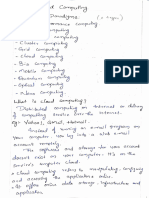 Computing
Paradigms
- Cluster computing
- Grid computing
- Cloud computing
- Bio computing
- Mobile computing
- Quantum computing
- Optical computing
- Nano computing
What is cloud computing?
computing service over the internet.
Eg: Yahoo!, Gmail, Hotmail.
Instead of running an e-mail program on
your computer, you log in to a web e-mail
account remotely.
The software and storage for your account
doesn't exist on your computer. It's on the
service's computer cloud.
Cloud computing refers to manipulating, configuring
and accessing the application online.
It offers online data storage, infrastructure and
application.